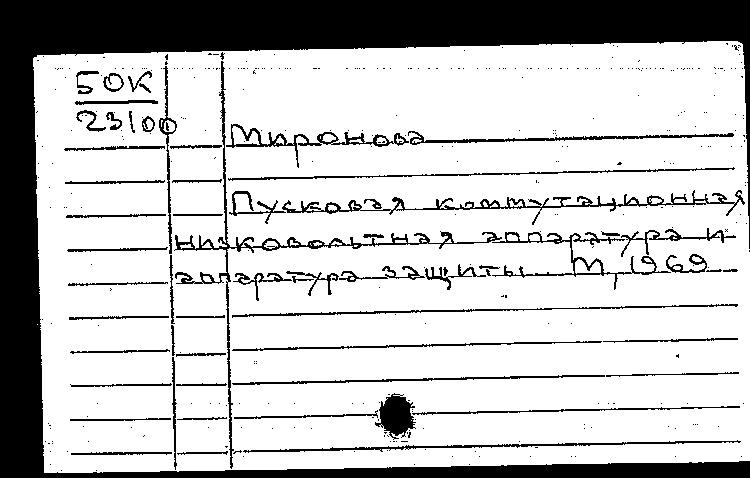 50К
23100
Миронова
Пусковая коммутационная
низковольтная аппаратура и
аппаратура защиты. М, 1969